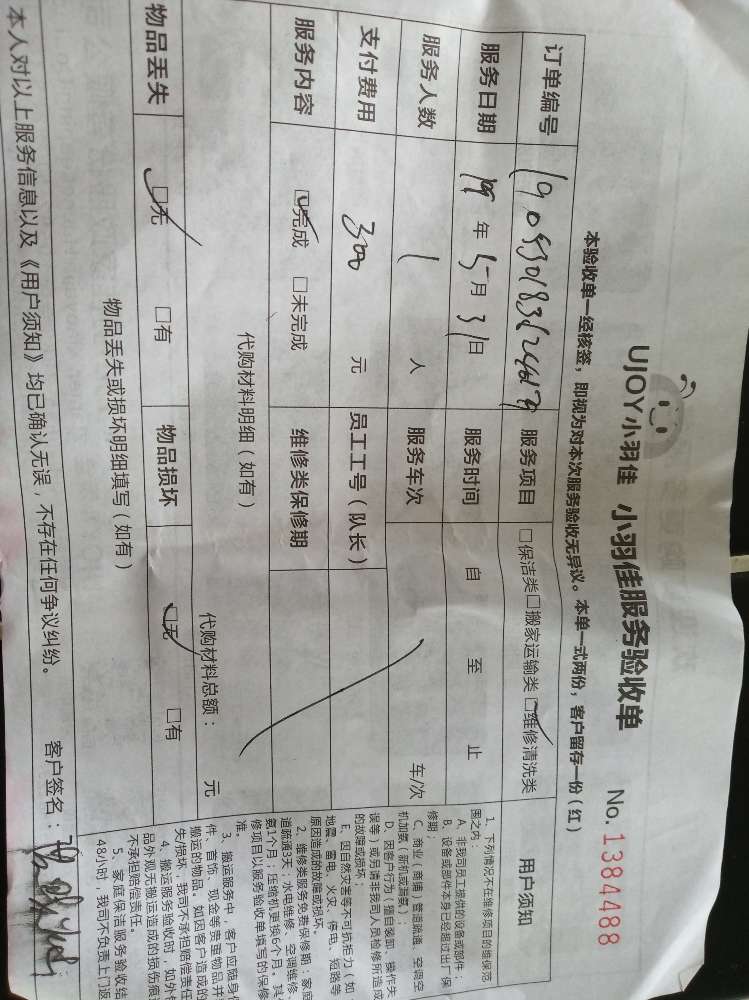 UJOY小羽佳 小羽佳服务验收单 No.1384488
本验收单一经核签，即视为对本次服务验收无异议。本单一式两份，客户留存一份（红）
订单编号 服务项目 □保洁类□搬家运输类☑维修清洗类
服务日期 19年5月31日 服务时间 自 至 止
服务人数 1 人 服务车次 车/次
支付费用 300 元 员工工号（队长）
服务内容 ☑完成 □未完成 维修类保修期
代购材料明细（如有） 代购材料总额： 元
物品丢失 ☑无 □有 物品损坏 ☑无 □有
物品丢失或损坏明细填写（如有）
本人对以上服务信息以及《用户须知》均已确认无误，不存在任何争议纠纷。 客户签名：
用户须知
1、下列情况不在维修项目的维保范
围之内：
A、非我司员工提供的设备或部件；
B、设备或部件本身已经超过出厂保
修期；
C、商业（商铺）管道疏通、空调空
机加氨（新机或漏氨）；
D、因客户行为（擅自装卸、操作失
误等）或另请非我司人员检修所造成
的故障或损坏；
E、因自然灾害等不可抗拒力（如
地震、雷电、火灾、停电、短路等
原因造成的故障或损坏。
2、维修类服务免费保修期：家庭
道疏通3天；水电维修、空调维修、
氨1个月；压缩机更换6个月。其
修项目以服务验收单填写的保修
准。
3、搬运服务中，客户应随身
件、首饰、现金等贵重物品并
搬运的物品，如因客户造成的
失/损坏，我司不承担赔偿责任
4、搬运服务验收时，如外包
品外观无搬运造成的损伤痕迹
不承担赔偿责任。
5、家庭保洁服务验收结
48小时，我司不负责上门返